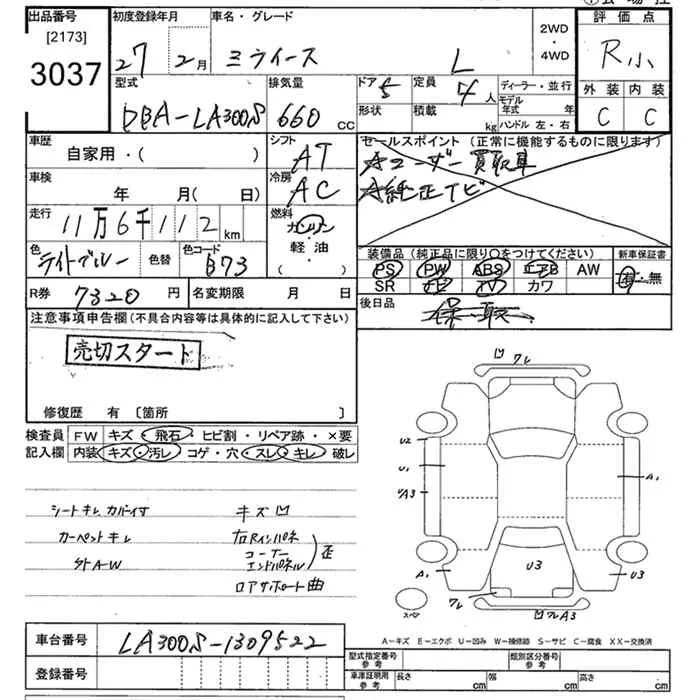 出品番号 初度登録年月 車名・グレード 評価点
[2173]
3037 27 2月 ミライース L 2WD・4WD R小
型式 排気量 ドア 5 定員 4人 ディーラー・並行 外装 内装
DBA-LA300S 660cc 形状 積載 kg モデル年式 年 ハンドル 左・右 C C
車歴 自家用・( ) シフト AT セールスポイント (正常に機能するものに限ります)
車検 年 月( 日) 冷房 AC Aユーザー買取車
A純正ナビ
走行 11万6千112km 燃料 ガソリン
軽・油
・( )
色 ライトブルー 色替 色コード B73 装備品 (純正品に限り○をつけてください) 新車保証書
PS PW ABS エアB AW 有・無
R券 7320円 名変期限 月 日 SR ナビ TV カワ
注意事項申告欄 (不具合内容等は具体的に記入して下さい) 後日品 保、取、
売切スタート
修復歴 有 〔箇所 〕
検査員 FW キズ・飛石・ヒビ割・リペア跡・×要
記入欄 内装 キズ・汚レ コゲ・穴・スレ・キレ 破レ
シートキレ カバー付 キズ凹
カーペットキレ 右Rインパネ
コーナー
エンドパネル 歪
外A-W
ロアサポート曲
フレ
U2
U1
UA3
A1
A1
U3
U3
フレ
スペア
凹フレA3
A−キズ E−エクボ U−凹み W−補修跡 S−サビ C−腐食 XX−交換済
車台番号 LA300S-1309522
登録番号
型式指定番号 参考 類別区分番号 参考
車庫証明用 参考 長さ cm 幅 cm 高さ cm